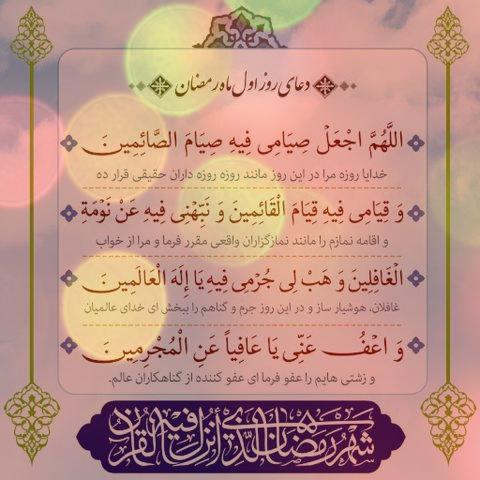 دعای روز اول ماه رمضان
اللَّهُمَّ اجْعَلْ صِيَامِی فِيهِ صِيَامَ الصَّائِمِينَ
خدایا روزه مرا در این روز مانند روزه روزه داران حقیقی قرار ده
وَ قِيَامِی فِيهِ قِيَامَ الْقَائِمِينَ وَ نَبِّهْنِی فِيهِ عَنْ نَوْمَةِ
و اقامه نمازم را مانند نمازگزاران واقعی مقرر فرما و مرا از خواب
الْغَافِلِينَ وَ هَبْ لِی جُرْمِی فِيهِ يَا إِلَهَ الْعَالَمِينَ
غافلان، هوشیار ساز و در این روز جرم و گناهم را ببخش ای خدای عالمیان
وَ اعْفُ عَنِّی يَا عَافِياً عَنِ الْمُجْرِمِينَ
و زشتی هایم را عفو فرما ای عفو کننده از گناهکاران عالم.
شَهْرُ رَمَضَانَ الَّذِي أُنْزِلَ فِيهِ الْقُرْآنُ